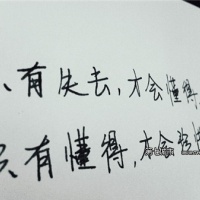 只有失去，才会懂得
只有懂得，才会